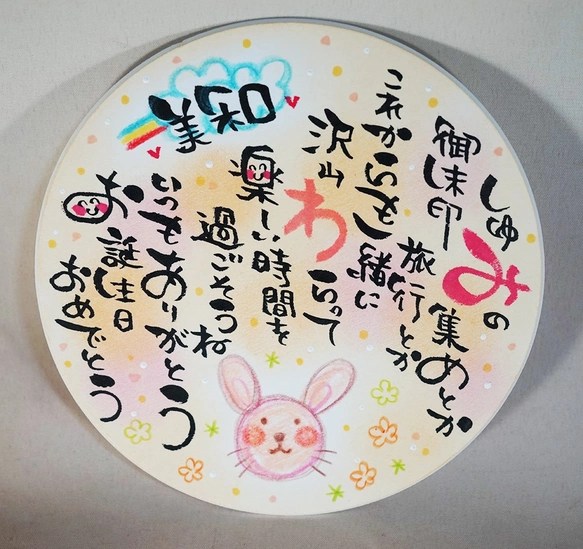 美和
しゅみの
御朱印集めとか
旅行とか
これからも一緒に
沢山わらって
楽しい時間を
過ごそうね
いつもありがとう
お誕生日
おめでとう